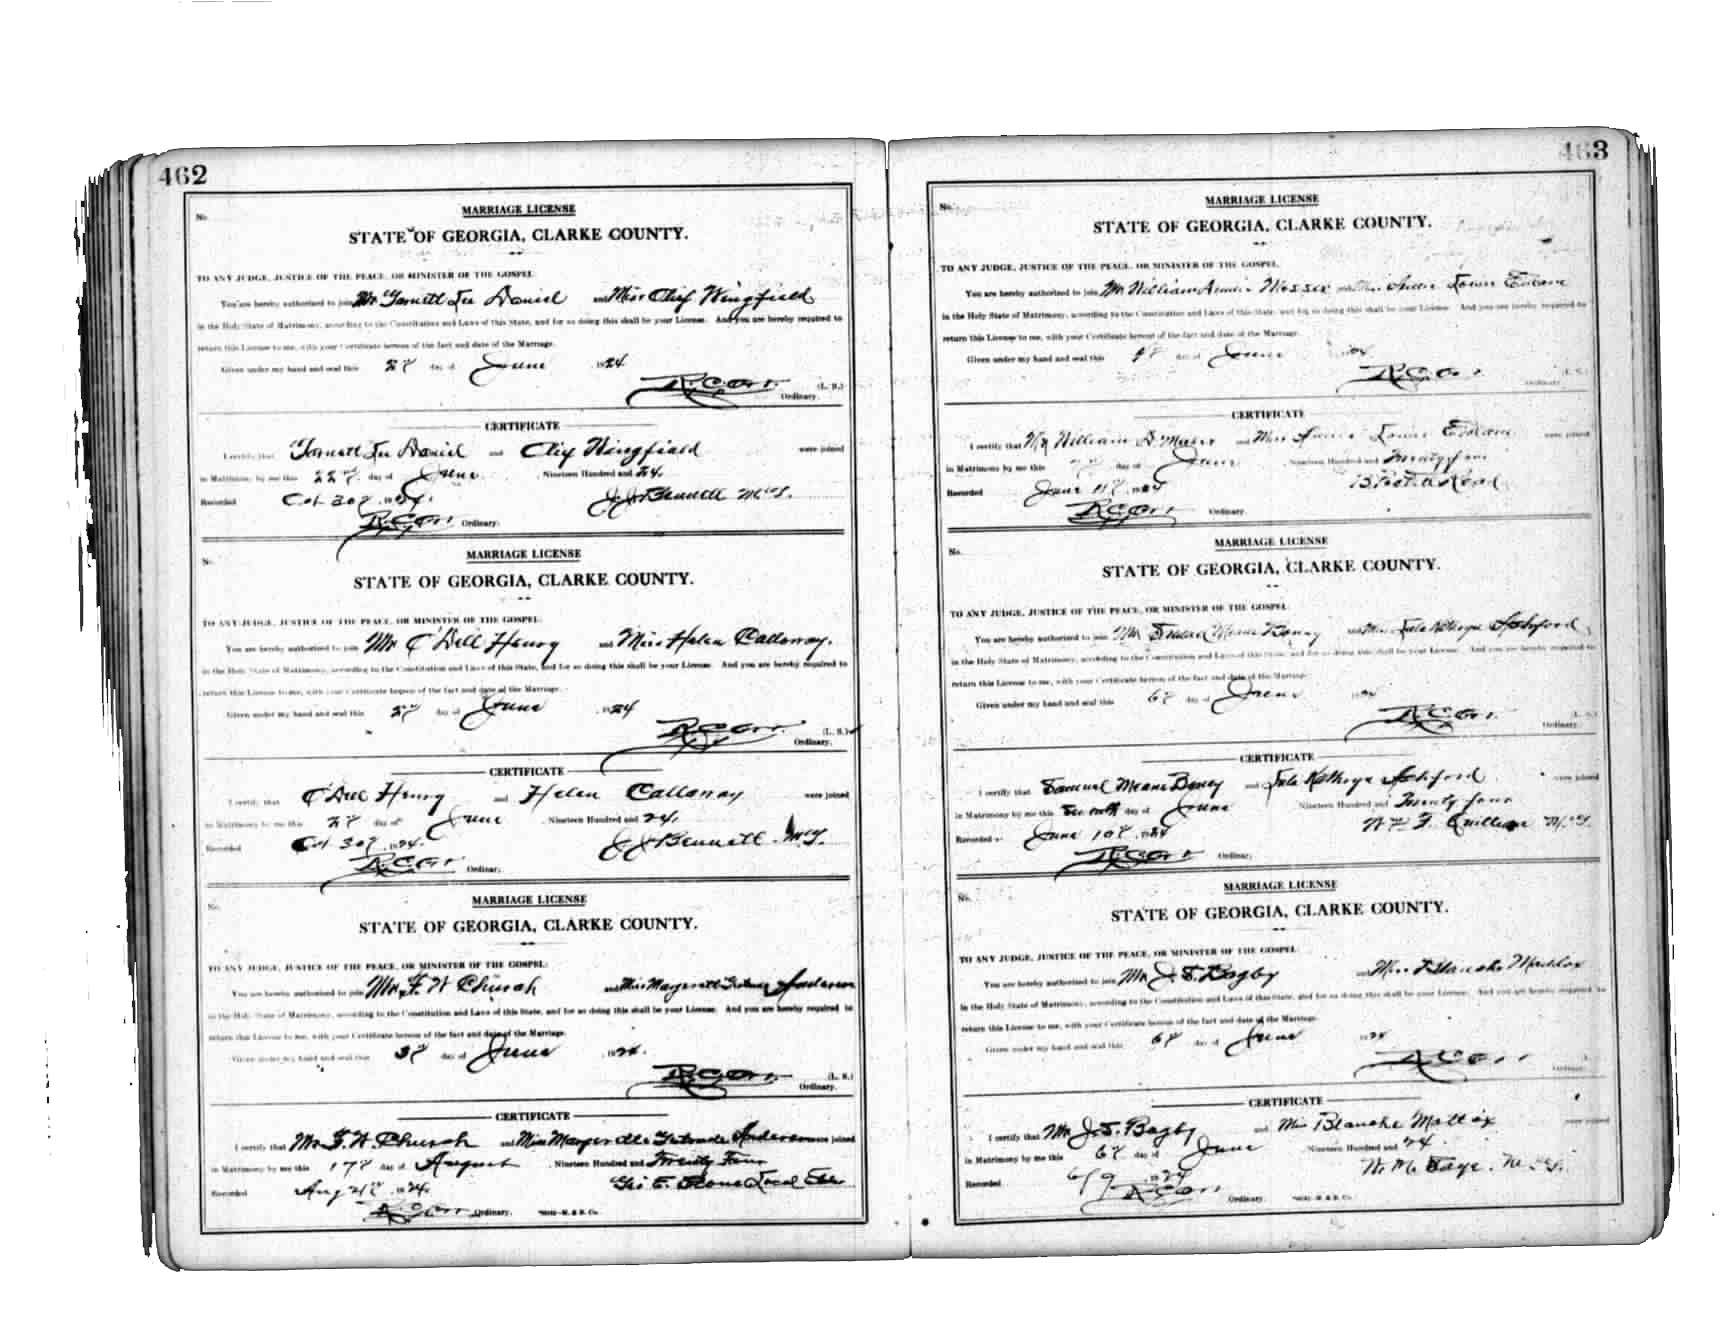 462
No.
MARRIAGE LICENSE
STATE OF GEORGIA, CLARKE COUNTY.
TO ANY JUDGE, JUSTICE OF THE PEACE, OR MINISTER OF THE GOSPEL:
You are hereby authorized to join Mr. Garnett Lee Daniel and Miss Wingfield
in the Holy State of Matrimony, according to the Constitution and Laws of this State, and for so doing this shall be your License. And you are hereby required to
return this License to me, with your Certificate hereon of the fact and date of the Marriage.
Given under my hand and seal this day of June 1924
R.C. Orr (L. S.)
Ordinary.
CERTIFICATE
I certify that Garnett Lee Daniel and Wingfield were joined
in Matrimony by me this day of June Nineteen Hundred and 24.
Recorded Oct 30 1924. J J Bennett M.G.
R.C. Orr Ordinary.
No.
MARRIAGE LICENSE
STATE OF GEORGIA, CLARKE COUNTY.
TO ANY JUDGE, JUSTICE OF THE PEACE, OR MINISTER OF THE GOSPEL:
You are hereby authorized to join Mr. O'Dell Henry and Miss Helen Callaway.
in the Holy State of Matrimony, according to the Constitution and Laws of this State, and for so doing this shall be your License. And you are hereby required to
return this License to me, with your Certificate hereon of the fact and date of the Marriage.
Given under my hand and seal this day of June 1924
R.C. Orr (L. S.)
Ordinary.
CERTIFICATE
I certify that O'Dell Henry and Helen Callaway were joined
in Matrimony by me this day of June Nineteen Hundred and 24.
Recorded Oct 30 1924. J J Bennett M.G.
R.C. Orr Ordinary.
No.
MARRIAGE LICENSE
STATE OF GEORGIA, CLARKE COUNTY.
TO ANY JUDGE, JUSTICE OF THE PEACE, OR MINISTER OF THE GOSPEL:
You are hereby authorized to join Mr. F. W Church and Miss Anderson
in the Holy State of Matrimony, according to the Constitution and Laws of this State, and for so doing this shall be your License. And you are hereby required to
return this License to me, with your Certificate hereon of the fact and date of the Marriage.
Given under my hand and seal this 3 day of June 1924.
R.C. Orr (L. S.)
Ordinary.
CERTIFICATE
I certify that Mr. F. W. Church and Miss Gertrude Anderson were joined
in Matrimony by me this 17 day of August Nineteen Hundred and Twenty Four
Recorded Aug 21 1924. Geo E. Local
R.C. Orr Ordinary.
463
No.
MARRIAGE LICENSE
STATE OF GEORGIA, CLARKE COUNTY.
TO ANY JUDGE, JUSTICE OF THE PEACE, OR MINISTER OF THE GOSPEL:
You are hereby authorized to join Mr. William and Miss Annie Louise
in the Holy State of Matrimony, according to the Constitution and Laws of this State, and for so doing this shall be your License. And you are hereby required to
return this License to me, with your Certificate hereon of the fact and date of the Marriage.
Given under my hand and seal this day of June
R.C. Orr (L. S.)
Ordinary.
CERTIFICATE
I certify that Mr William and Miss Annie Louise were joined
in Matrimony by me this day of June Nineteen Hundred and Twenty four
Recorded June 11 1924 Read
R.C. Orr Ordinary.
No.
MARRIAGE LICENSE
STATE OF GEORGIA, CLARKE COUNTY.
TO ANY JUDGE, JUSTICE OF THE PEACE, OR MINISTER OF THE GOSPEL:
You are hereby authorized to join Mr. Means and Miss Kathryn Ashford
in the Holy State of Matrimony, according to the Constitution and Laws of this State, and for so doing this shall be your License. And you are hereby required to
return this License to me, with your Certificate hereon of the fact and date of the Marriage.
Given under my hand and seal this 6 day of June 1924
R.C. Orr (L. S.)
Ordinary.
CERTIFICATE
I certify that Samuel Means and Kathryn Ashford were joined
in Matrimony by me this day of June Nineteen Hundred and Twenty four
Recorded June 10 1924 Quillian M.G.
R.C. Orr Ordinary.
No.
MARRIAGE LICENSE
STATE OF GEORGIA, CLARKE COUNTY.
TO ANY JUDGE, JUSTICE OF THE PEACE, OR MINISTER OF THE GOSPEL:
You are hereby authorized to join Mr. J. S. Bagby and Miss Blanche Maddox
in the Holy State of Matrimony, according to the Constitution and Laws of this State, and for so doing this shall be your License. And you are hereby required to
return this License to me, with your Certificate hereon of the fact and date of the Marriage.
Given under my hand and seal this 6 day of June 1924
R.C. Orr
Ordinary.
CERTIFICATE
I certify that Mr. J. S. Bagby and Miss Blanche Mattox were joined
in Matrimony by me this 6 day of June Nineteen Hundred and 24.
Recorded 6/9 1924 W. M. M.G.
R.C. Orr Ordinary.